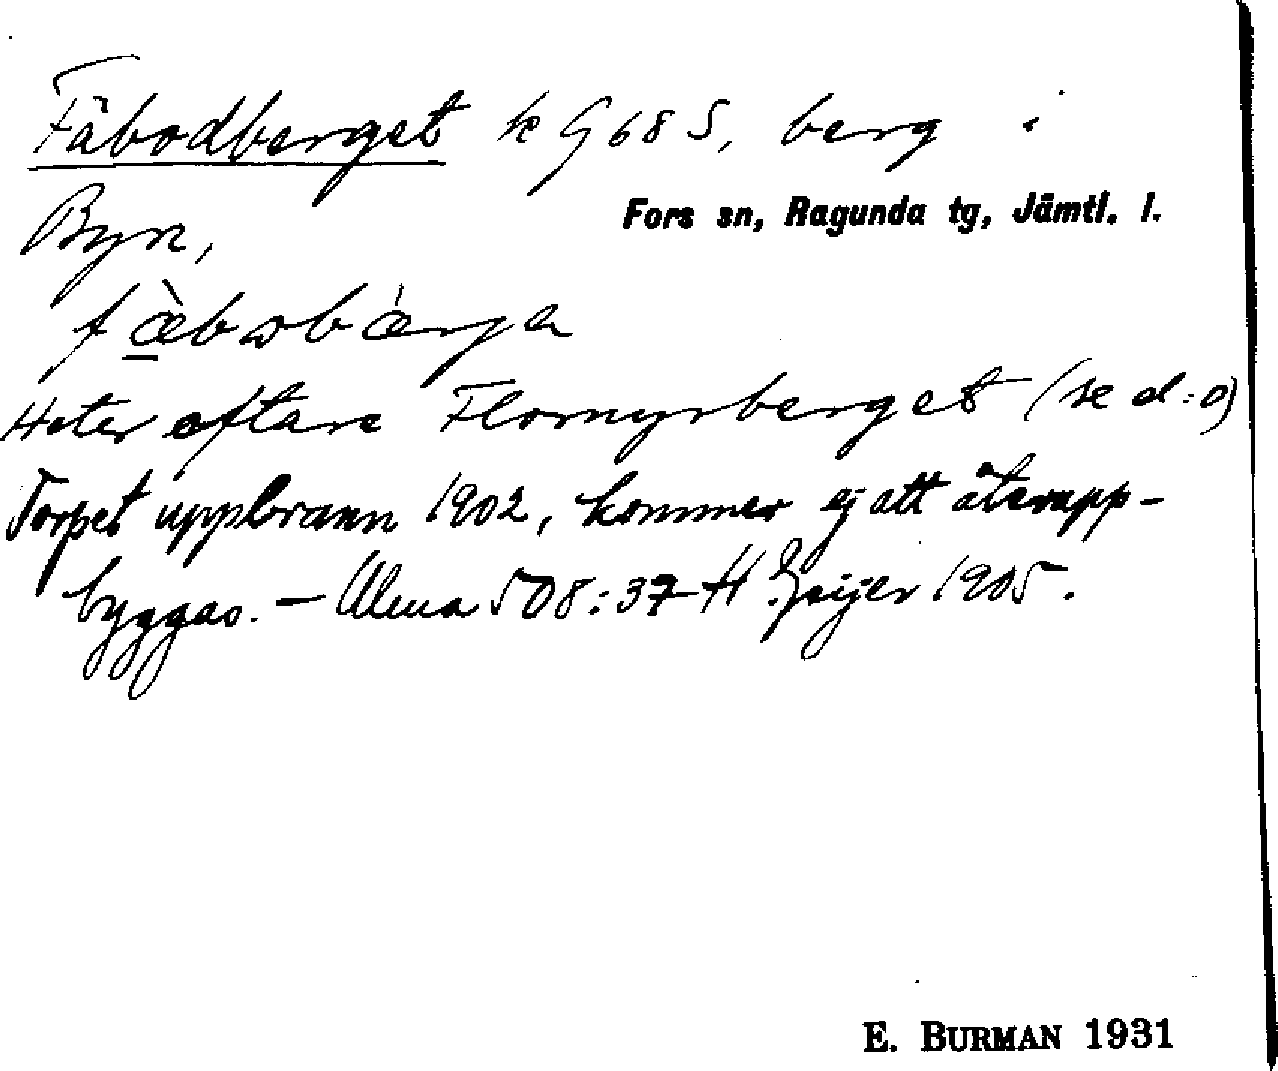 Fäbodberget k G 68 S, berg i
Fors sn, Ragunda tg, Jämtl. l.
Byn,
Heter oftare Flomyrberget (se d:o)
Torpet uppbrann 1902, kommer ej att återupp-
byggas. – Ulma 508:37 H. Geijer 1905.
E. BURMAN 1931